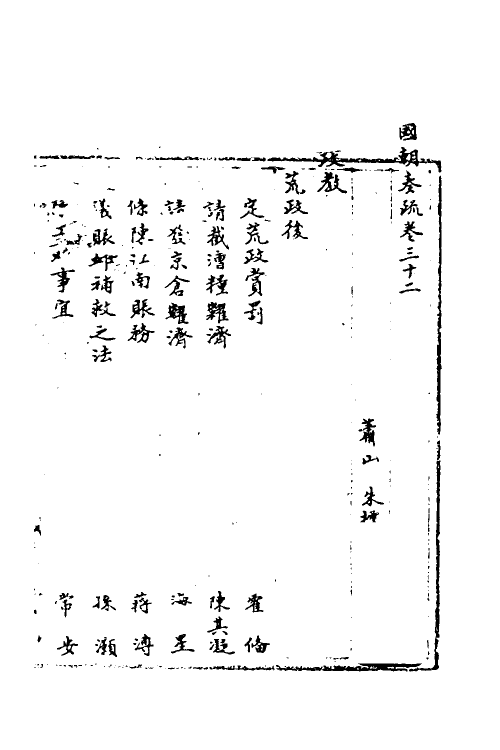 國朝奏疏卷三十二
蕭山 朱
荒政後
定荒政賞罰 霍 備
請截漕糧糶濟 陳其凝
請發京倉糶濟 海 望
條陳江南賬務 蔣 溥
議賬卹補救之法 孫 灝
事宜 常 安